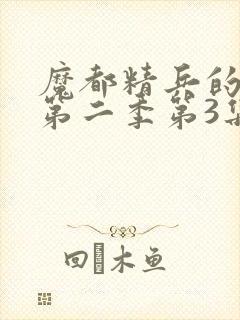 魔都精兵的
第二季第3集
回 木鱼